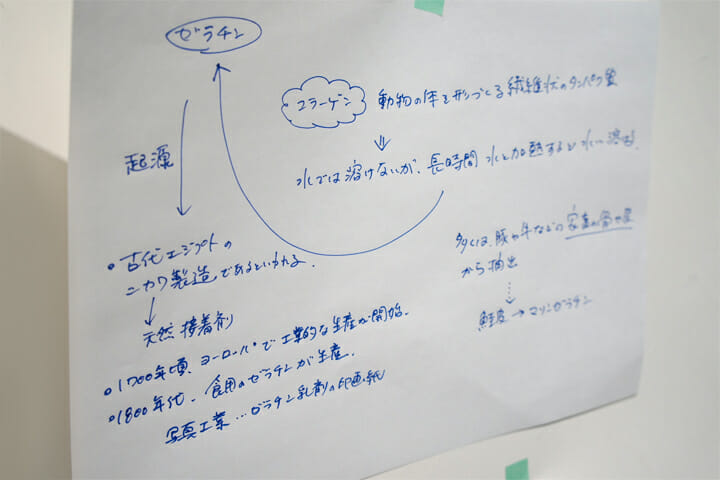 ゼラチン
コラーゲン 動物の体を形づくる繊維状のタンパク質
⇓
水では溶けないが、長時間 水と加熱すると水に溶ける.
起源
・古代エジプトの
ニカワ製造であるといわれる.
↓
天然接着剤
・1700年頃、ヨーロッパで工業的な生産が開始.
・1800年代、食用のゼラチンが生産.
写真工業…ゼラチン乳剤の印画紙
多くは、豚や牛などの家畜の骨や皮
から抽出
鮭皮→マリンゼラチン